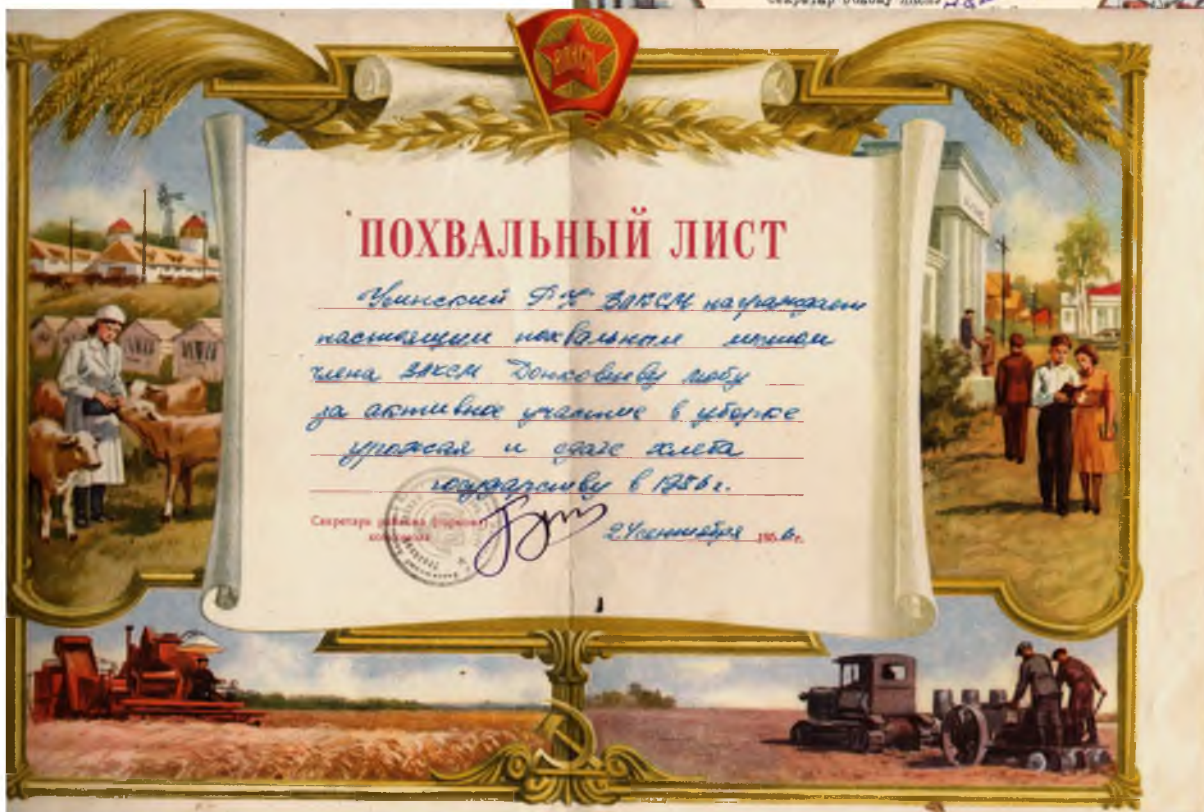 ВЛКСМ
ПОХВАЛЬНЫЙ ЛИСТ
РК ВЛКСМ награждает
настоящим похвальным листом
члена ВЛКСМ Любу
за активное участие в уборке
урожая и сдаче хлеба
государству в 1956 г.
Секретарь райкома (горкома)
комсомола
24 сентября 1956 г.